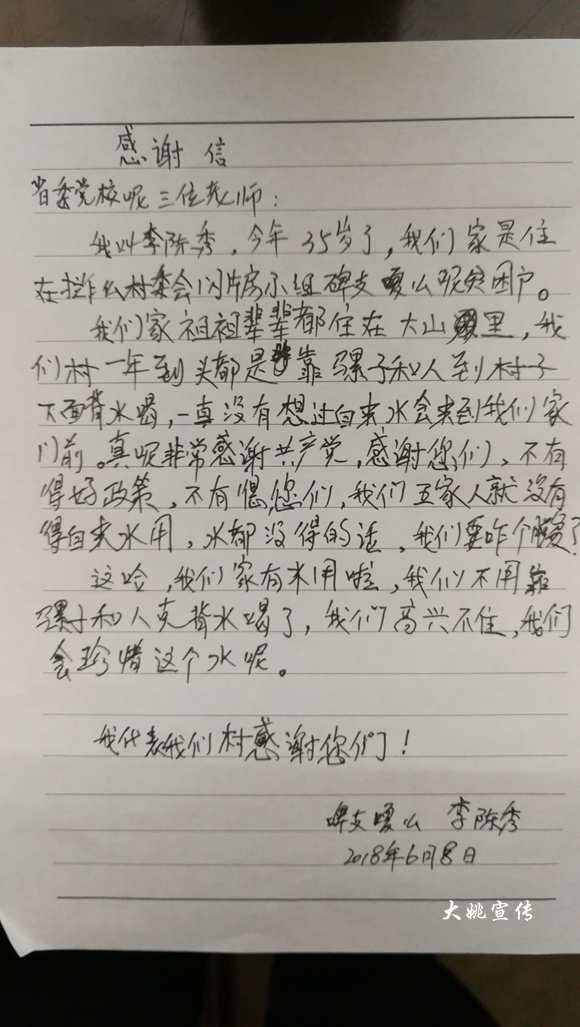 感谢信
省委党校呢三位老师:
我叫李陈秀,今年35岁了,我们家是住
在拃么村委会闪片房小组碑支嘎么呢贫困户。
我们家祖祖辈辈都住在大山里,我
们村一年到头都是靠骡子和人到村子
下面背水喝,一直没有想过自来水会来到我们家
门前。真呢非常感谢共产党,感谢您们,不有
得好政策,不有您们,我们五家人就没有
得自来水用,水都没得的话,我们要咋个
这哈,我们家有水用啦,我们不用靠
骡子和人克背水喝了,我们高兴不住,我们
会珍惜这个水呢。
我代表我们村感谢您们!
碑支嘎么 李陈秀
2018年6月8日
大姚宣传